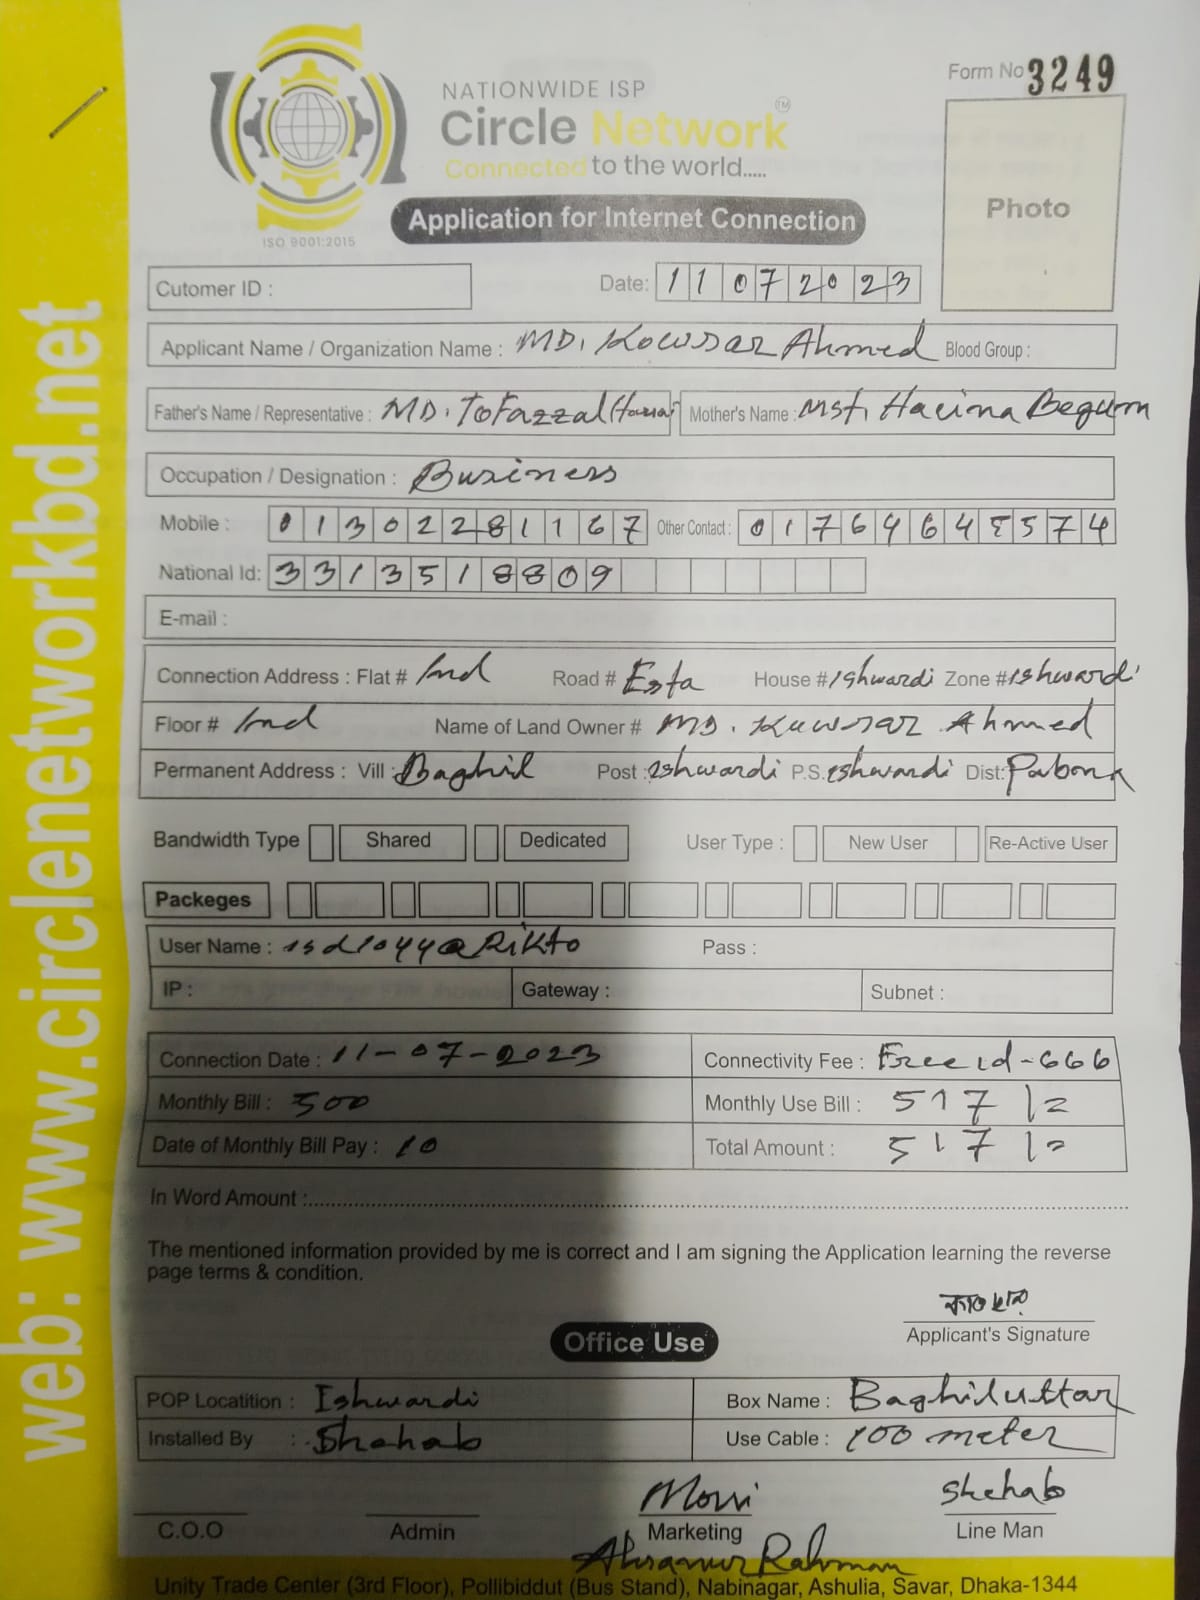 Form No 3249
NATIONWIDE ISP
Circle Network TM
Connected to the world.....
Photo
Application for Internet Connection
ISO 9001:2015
Cutomer ID : Date: 11072023
Applicant Name / Organization Name : MD. Kowsar Ahmed Blood Group :
Father's Name / Representative : MD. Tofazzal Mother's Name : Mst. Hacina Begum
Occupation / Designation : Business
Mobile : 01302281167 Other Contact :
National Id: 3313518809
E-mail :
Connection Address : Flat # Ind Road # Esta House # Ishwardi Zone # Ishwardi
Floor # Ind Name of Land Owner # MD. Kuwsar Ahmed
Permanent Address : Vill : Baghil Post : Ishwardi P.S. Ishwardi Dist: Pabna
Bandwidth Type Shared Dedicated User Type : New User Re-Active User
Packeges
User Name : isd1044@Rikto Pass :
IP : Gateway : Subnet :
Connection Date : 11-07-2023 Connectivity Fee : Free id-666
Monthly Bill : 500 Monthly Use Bill : 517/=
Date of Monthly Bill Pay : 10 Total Amount : 517/=
In Word Amount :
The mentioned information provided by me is correct and I am signing the Application learning the reverse
page terms & condition.
কাওছার
Applicant's Signature
Office Use
POP Locatition : Ishwardi Box Name : Baghiluttar
Installed By : Shehab Use Cable : 100 meter
Shehab
C.O.O Admin Marketing Line Man
Rahman
Unity Trade Center (3rd Floor), Pollibiddut (Bus Stand), Nabinagar, Ashulia, Savar, Dhaka-1344
web: www.circlenetworkbd.net